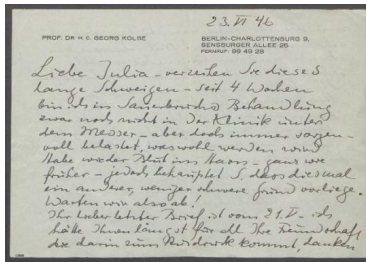 23. VI 46
PROF. DR. H. C. GEORG KOLBE
BERLIN-CHARLOTTENBURG 9,
SENSBURGER ALLEE 26
FERNRUF: 99 49 28
Liebe Julia - verzeihen Sie dieses
lange Schweigen - seit 4 Wochen
bin ich in Sauerbruchs Behandlung
zwar noch nicht in der Klinik unter
dem Messer - aber doch immer sorgen-
voll belastet, was wohl werden wird
Habe wieder Blut im Harn - ganz wie
früher - jedoch behauptet S. dass diesmal
ein anderer, weniger schwerer Grund vorliege.
Warten wir also ab!
Ihr lieber letzter Brief ist vom 21. V - ich
hätte Ihnen längst für all Ihre Freundschaft,
die darin zum Ausdruck kommt, danken